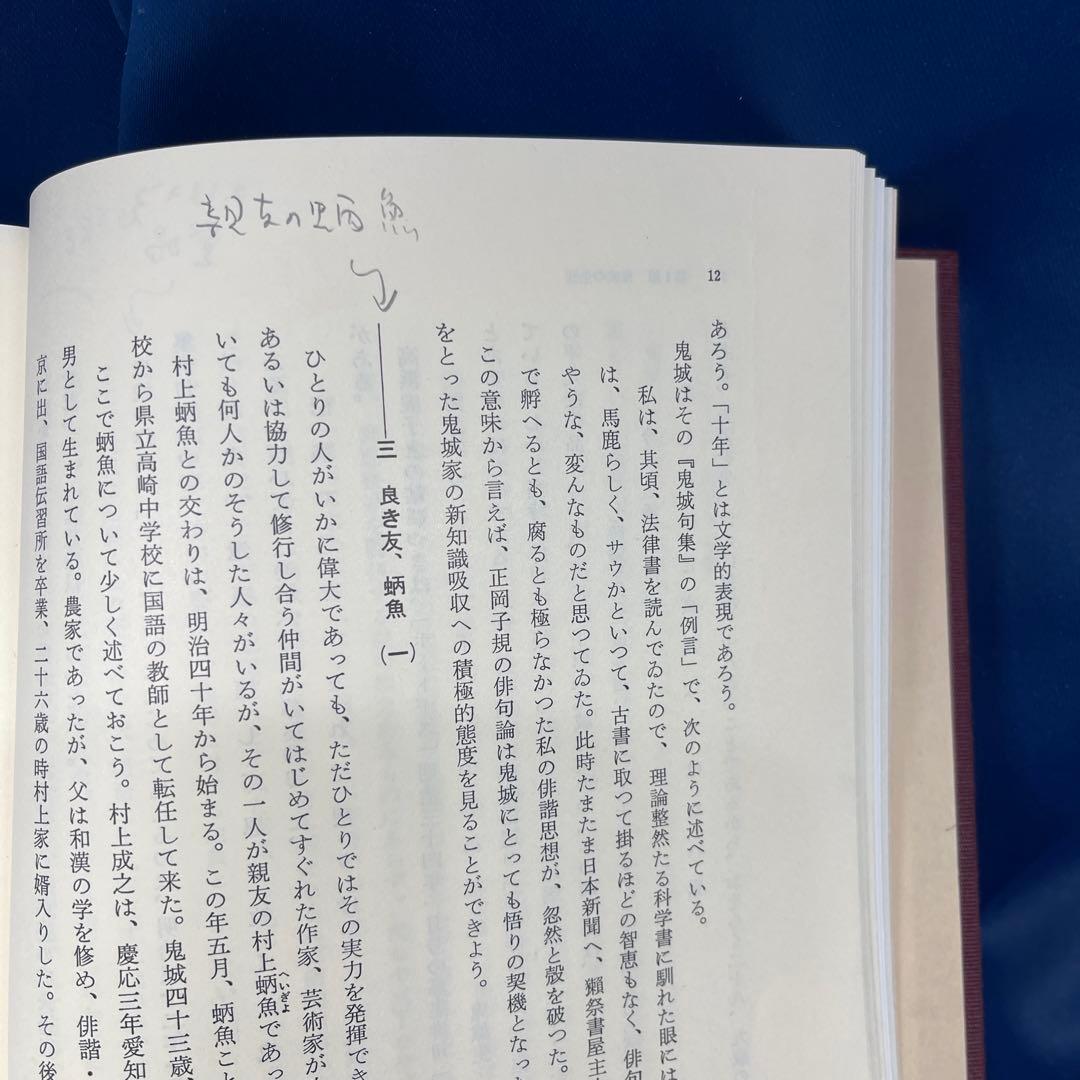 親友の蛃魚
12
あろう。「十年」とは文学的表現であろう。
鬼城はその『鬼城句集』の「例言」で、次のように述べている。
私は、其頃、法律書を読んでゐたので、理論整然たる科学書に馴れた眼には
は、馬鹿らしく、サウかといつて、古書に取つて掛るほどの智恵もなく、俳句
やうな、変んなものだと思つてゐた。此時たまたま日本新聞へ、獺祭書屋主
で孵へるとも、腐るとも極らなかつた私の俳諧思想が、忽然と殻を破つた。
この意味から言えば、正岡子規の俳句論は鬼城にとっても悟りの契機となっ
をとった鬼城家の新知識吸収への積極的態度を見ることができよう。
三 良き友、蛃魚 (一)
ひとりの人がいかに偉大であっても、ただひとりではその実力を発揮でき
あるいは協力して修行し合う仲間がいてはじめてすぐれた作家、芸術家が
いても何人かのそうした人々がいるが、その一人が親友の村上蛃魚であっ
へいぎよ
村上蛃魚との交わりは、明治四十年から始まる。この年五月、蛃魚こと
校から県立高崎中学校に国語の教師として転任して来た。鬼城四十三歳、
ここで蛃魚について少しく述べておこう。村上成之は、慶応三年愛知
男として生まれている。農家であったが、父は和漢の学を修め、俳諧・
京に出、国語伝習所を卒業、二十六歳の時村上家に婿入りした。その後